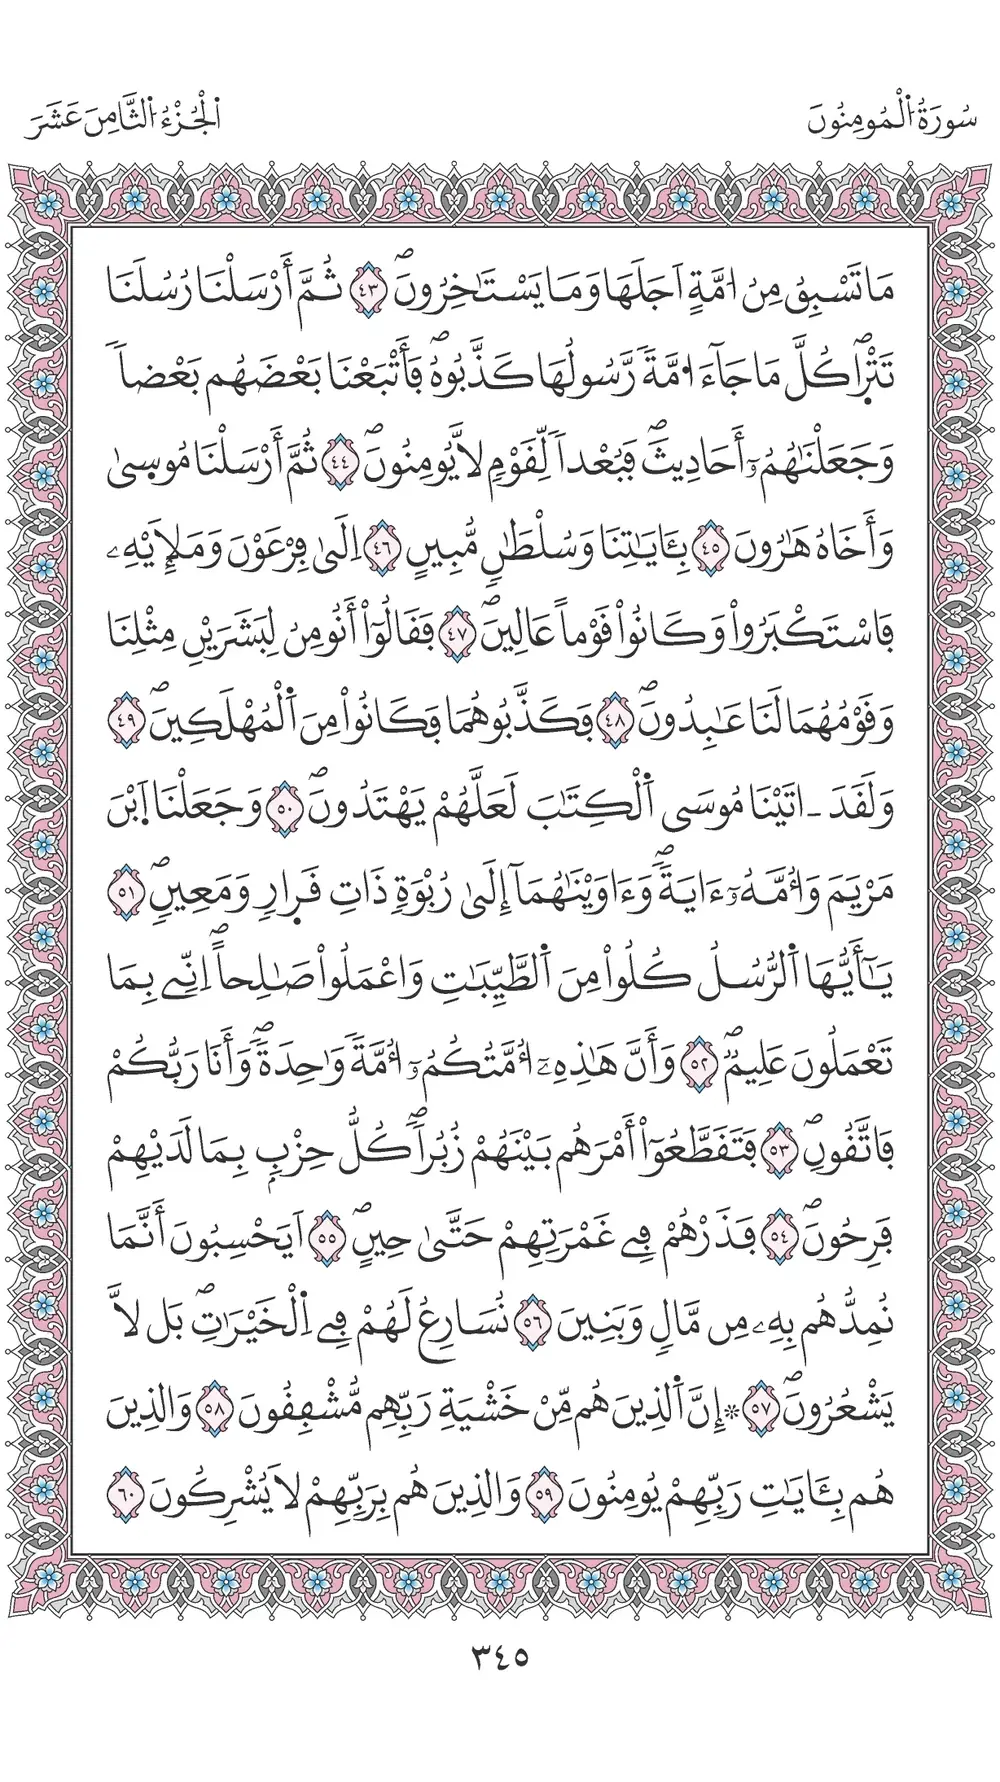 سُورَةُ اُ۬لْمُومِنُونَ
اَ۬لْجُزْءُ اُ۬لثَّامِنَ عَشَرَ
مَا تَسْبِقُ مِنُ ا۟مَّةٍ اَجَلَهَا وَمَا يَسْتَٰخِرُونَۖ ٤٣ ثُمَّ أَرْسَلْنَا رُسُلَنَا
تَتْر۪اۖ كُلَّ مَا جَآءَ ا۟مَّةٗ رَّسُولُهَا كَذَّبُوهُۖ فَأَتْبَعْنَا بَعْضَهُم بَعْضاٗ
وَجَعَلْنَٰهُمُۥٓ أَحَادِيثَۖ فَبُعْداٗ لِّقَوْمٖ لَّا يُومِنُونَۖ ٤٤ ثُمَّ أَرْسَلْنَا مُوس۪يٰ
وَأَخَاهُ هَٰرُونَ ٤٥ بِـَٔايَٰتِنَا وَسُلْطَٰنٖ مُّبِينٍ ٤٦ اِلَيٰ فِرْعَوْنَ وَمَلَإِيْهِۦ
فَاسْتَكْبَرُواْ وَكَانُواْ قَوْماً عَالِينَۖ ٤٧ فَقَالُوٓاْ أَنُومِنُ لِبَشَرَيْنِ مِثْلِنَا
وَقَوْمُهُمَا لَنَا عَٰبِدُونَۖ ٤٨ فَكَذَّبُوهُمَا فَكَانُواْ مِنَ اَ۬لْمُهْلَكِينَۖ ٤٩
وَلَقَدَ ـ اتَيْنَا مُوسَي اَ۬لْكِتَٰبَ لَعَلَّهُمْ يَهْتَدُونَۖ ٥٠ وَجَعَلْنَا اَ۪بْنَ
مَرْيَمَ وَأُمَّهُۥٓ ءَايَةٗۖ وَءَاوَيْنَٰهُمَآ إِلَيٰ رُبْوَةٖ ذَاتِ قَر۪ارٖ وَمَعِينٖۖ ٥١
يَٰٓأَيُّهَا اَ۬لرُّسُلُ كُلُواْ مِنَ اَ۬لطَّيِّبَٰتِ وَاعْمَلُواْ صَٰلِحاًۖ اِنِّے بِمَا
تَعْمَلُونَ عَلِيمٞۖ ٥٢ وَأَنَّ هَٰذِهِۦٓ أُمَّتُكُمُۥٓ أُمَّةٗ وَٰحِدَةٗۖ وَأَنَا رَبُّكُمْ
فَاتَّقُونِۖ ٥٣ فَتَقَطَّعُوٓاْ أَمْرَهُم بَيْنَهُمْ زُبُراٗۖ كُلُّ حِزْبِۢ بِمَا لَدَيْهِمْ
فَرِحُونَۖ ٥٤ فَذَرْهُمْ فِے غَمْرَتِهِمْ حَتَّيٰ حِينٍۖ ٥٥ اَيَحْسِبُونَ أَنَّمَا
نُمِدُّهُم بِهِۦ مِن مَّالٖ وَبَنِينَ ٥٦ نُسَارِعُ لَهُمْ فِے اِ۬لْخَيْرَٰتِۖ بَل لَّا
يَشْعُرُونَۖ ٥٧ ۞ إِنَّ اَ۬لذِينَ هُم مِّنْ خَشْيَةِ رَبِّهِم مُّشْفِقُونَ ٥٨ وَالذِينَ
هُم بِـَٔايَٰتِ رَبِّهِمْ يُومِنُونَ ٥٩ وَالذِينَ هُم بِرَبِّهِمْ لَا يُشْرِكُونَ ٦٠
٣٤٥